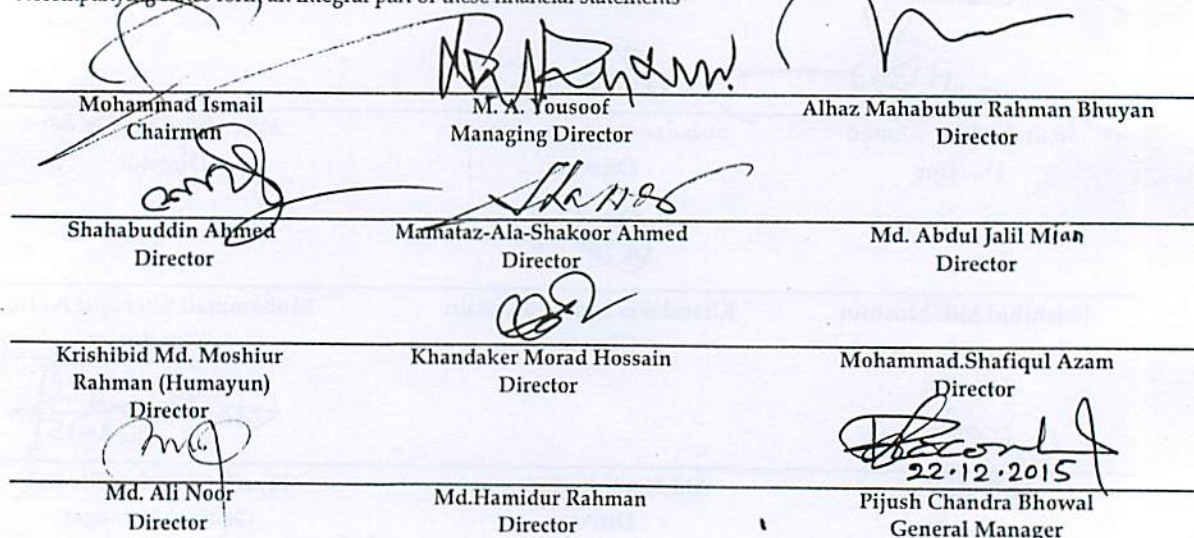 form an integral part of these financial statements
Mohammad Ismail
Chairman
M. A. Yousoof
Managing Director
Alhaz Mahabubur Rahman Bhuyan
Director
Shahabuddin Ahmed
Director
Mamataz-Ala-Shakoor Ahmed
Director
Md. Abdul Jalil Mian
Director
Krishibid Md. Moshiur
Rahman (Humayun)
Director
Khandaker Morad Hossain
Director
Mohammad.Shafiqul Azam
Director
Md. Ali Noor
Director
Md.Hamidur Rahman
Director
22.12.2015
Pijush Chandra Bhowal
General Manager